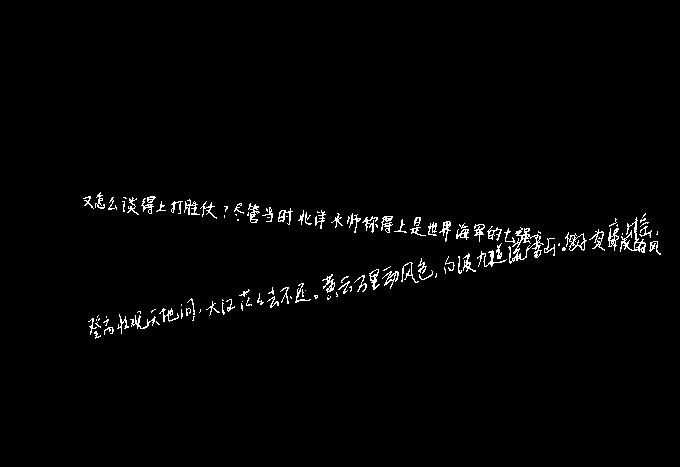 又怎么谈得上打胜仗？尽管当时北洋水师称得上是世界海军的七强
登高壮观天地间，大江茫茫去不还。黄云万里动风色，白波九道流雪山。